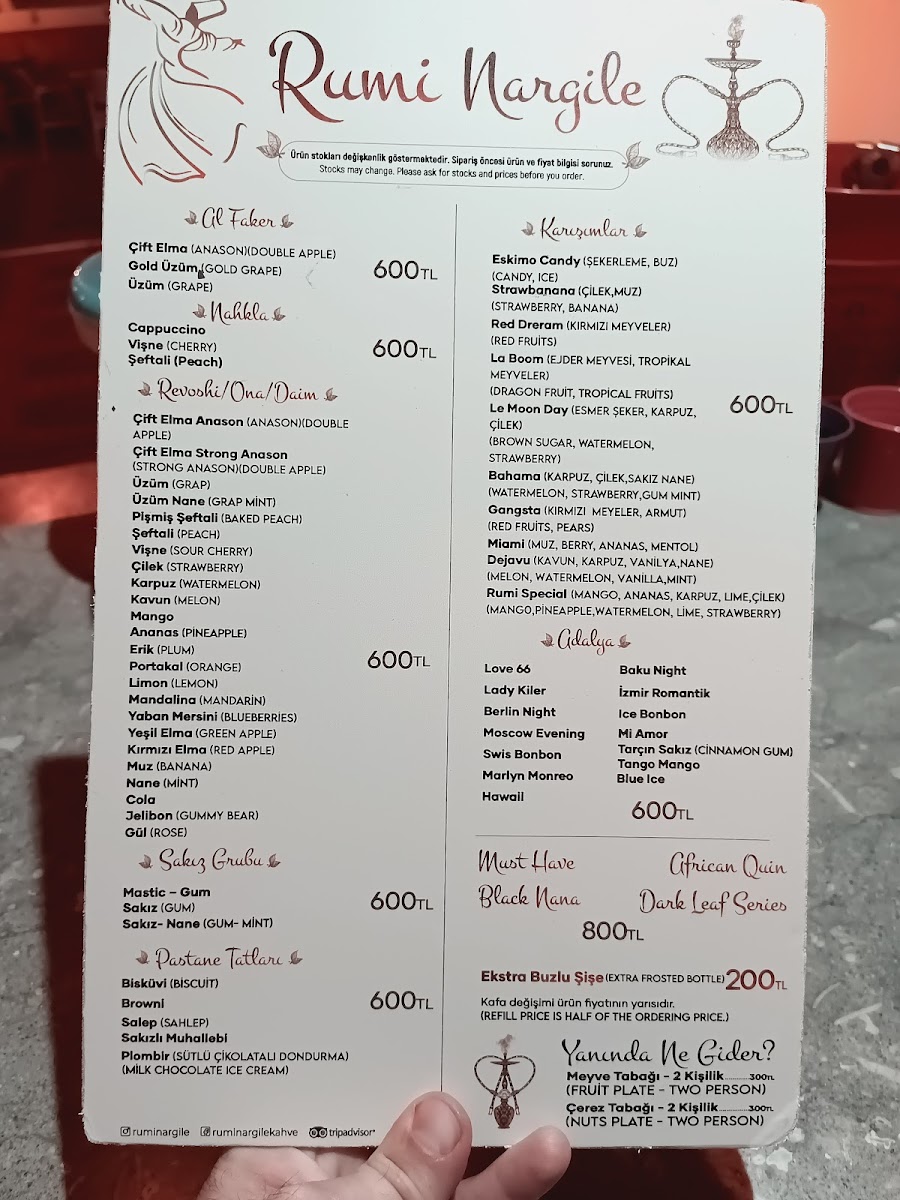 Rumi Nargile
Ürün stokları değişkenlik göstermektedir. Sipariş öncesi ürün ve fiyat bilgisi sorunuz.
Stocks may change. Please ask for stocks and prices before you order.
Al Faker
Çift Elma (ANASON)(DOUBLE APPLE)
Gold Üzüm (GOLD GRAPE)
Üzüm (GRAPE)
600TL
Nahkla
Cappuccino
Vişne (CHERRY)
Şeftali (Peach)
600TL
Revoshi/Ona/Daim
Çift Elma Anason (ANASON)(DOUBLE
APPLE)
Çift Elma Strong Anason
(STRONG ANASON)(DOUBLE APPLE)
Üzüm (GRAP)
Üzüm Nane (GRAP MİNT)
Pişmiş Şeftali (BAKED PEACH)
Şeftali (PEACH)
Vişne (SOUR CHERRY)
Çilek (STRAWBERRY)
Karpuz (WATERMELON)
Kavun (MELON)
Mango
Ananas (PİNEAPPLE)
Erik (PLUM)
Portakal (ORANGE)
Limon (LEMON)
Mandalina (MANDARİN)
Yaban Mersini (BLUEBERRİES)
Yeşil Elma (GREEN APPLE)
Kırmızı Elma (RED APPLE)
Muz (BANANA)
Nane (MİNT)
Cola
Jelibon (GUMMY BEAR)
Gül (ROSE)
600TL
Sakız Grubu
Mastic – Gum
Sakız (GUM)
Sakız- Nane (GUM- MİNT)
600TL
Pastane Tatları
Bisküvi (BİSCUİT)
Browni
Salep (SAHLEP)
Sakızlı Muhallebi
Plombir (SÜTLÜ ÇİKOLATALI DONDURMA)
(MİLK CHOCOLATE ICE CREAM)
600TL
ruminargile ruminargilekahve tripadvisor
Karışımlar
Eskimo Candy (ŞEKERLEME, BUZ)
(CANDY, ICE)
Strawbanana (ÇİLEK,MUZ)
(STRAWBERRY, BANANA)
Red Dreram (KIRMIZI MEYVELER)
(RED FRUİTS)
La Boom (EJDER MEYVESİ, TROPİKAL
MEYVELER)
(DRAGON FRUİT, TROPİCAL FRUİTS)
Le Moon Day (ESMER ŞEKER, KARPUZ,
ÇİLEK)
(BROWN SUGAR, WATERMELON,
STRAWBERRY)
Bahama (KARPUZ, ÇİLEK,SAKIZ NANE)
(WATERMELON, STRAWBERRY,GUM MINT)
Gangsta (KIRMIZI MEYELER, ARMUT)
(RED FRUİTS, PEARS)
Miami (MUZ, BERRY, ANANAS, MENTOL)
Dejavu (KAVUN, KARPUZ, VANİLYA,NANE)
(MELON, WATERMELON, VANİLLA,MINT)
Rumi Special (MANGO, ANANAS, KARPUZ, LIME,ÇİLEK)
(MANGO,PİNEAPPLE,WATERMELON, LİME, STRAWBERRY)
600TL
Adalya
Love 66
Lady Kiler
Berlin Night
Moscow Evening
Swis Bonbon
Marlyn Monreo
Hawaii
Baku Night
İzmir Romantik
Ice Bonbon
Mi Amor
Tarçın Sakız (CİNNAMON GUM)
Tango Mango
Blue Ice
600TL
Must Have African Quin
Black Nana Dark Leaf Series
800TL
Ekstra Buzlu Şişe (EXTRA FROSTED BOTTLE) 200TL
Kafa değişimi ürün fiyatının yarısıdır.
(REFILL PRICE IS HALF OF THE ORDERING PRICE.)
Yanında Ne Gider?
Meyve Tabağı - 2 Kişilik...........300TL
(FRUIT PLATE - TWO PERSON)
Çerez Tabağı - 2 Kişilik.............300TL
(NUTS PLATE - TWO PERSON)